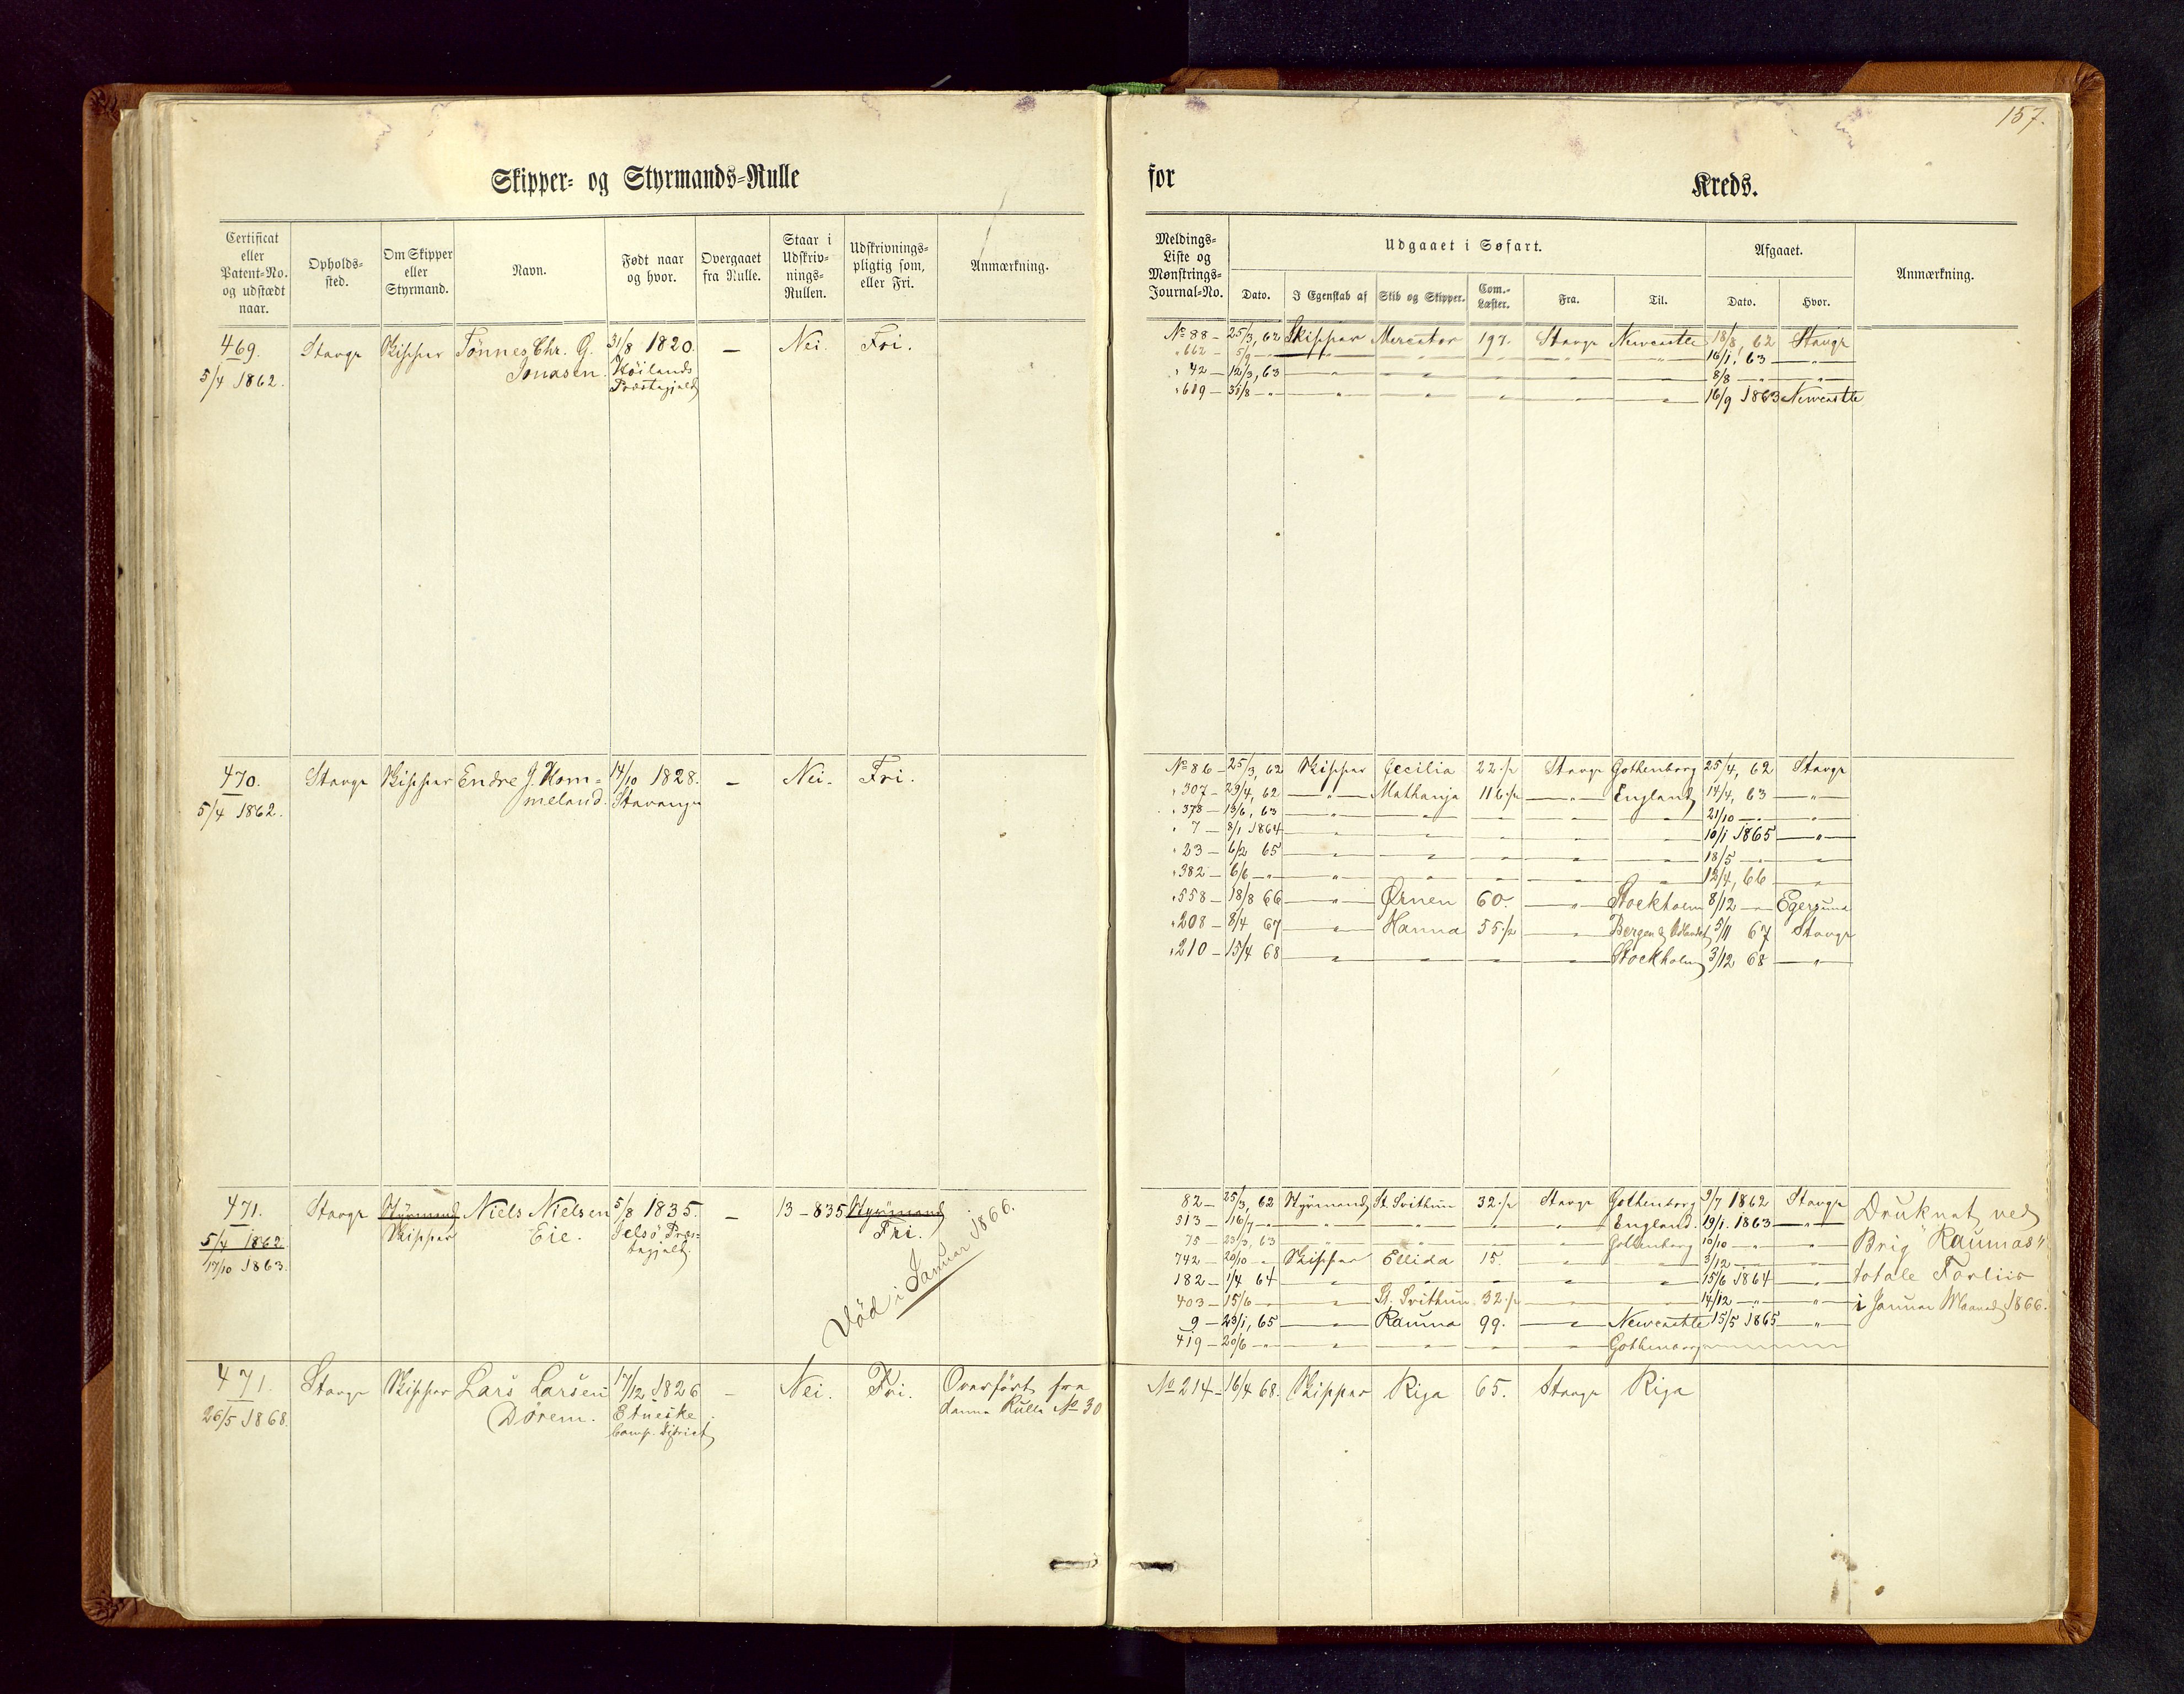 157.
Skipper- og Styrmands-Rulle for Kreds.
Certificat eller Patent-No. og udstædt naar.
Opholds-sted.
Om Skipper eller Styrmand.
Navn.
Født naar og hvor.
Overgaaet fra Rulle.
Staar i Udskriv-nings-Rullen.
Udskrivnings-pligtig som, eller Fri.
Anmærkning.
Meldings-Liste og Mønstrings-Journal-No.
Udgaaet i Søfart.
Dato.
I Egenskab af
Skib og Skipper.
Com.-Læster.
Fra.
Til.
Afgaaet.
Dato.
Hvor.
Anmærkning.
469. Stavgr Skipper Tönnes Chr. G. 31/8 1820. — Nei. Fri.
5/4 1862. Jonasen. Höilands
Præstegjæld
No 88 – 25/3, 62 Skipper Mercator 197. Stavgr Newcastle 18/8, 62 Stavgr
" 662 – 5/9 – " — " — " — " — " — " 16/1, 63 — " —
" 42 – 12/3, 63 — " — " — " — " — " 8/8 — " — " —
" 619 – 31/8 – " — " — " — " — " — " 16/9 1863 Newcastle
470. Stavgr Skipper Endre J. Hom= 14/10 1828. — Nei. Fri.
5/4 1862. meland. Stavanger
No 86 – 25/3, 62 Skipper Cecilia 22 1/2 Stavgr Gothenborg 25/4, 62 Stavgr
" 307 – 29/4, 62 — " — Mathanja 116 1/2 — " — England 14/4, 63 — " —
" 378 – 13/6, 63 — " — " — " — " — " 21/10 — " — " —
" 7 – 8/1 1864 — " — " — " — " — " 10/1 1865 — " —
" 23 – 6/2 65 — " — " — " — " — " 18/5 — " — " —
" 382 – 6/6 – " — " — " — " — " — " 12/4, 66 — " —
" 558 – 18/8 66 — " — Ørnen 60. — " — Stockholm 8/12 — " Egersund
" 208 – 8/4 67 — " — Hanna 55 1/2 — " — Bergen & Udlandet 5/11 67 Stavgr
" 210 – 15/4 68 — " — " — " — " — Stockholm 3/12 68 — " —
471. Stavgr Styrmand Niels Nielsen 5/8 1835. — 13 – 835 Styrmand
5/4 1862. Skipper Eie. Jelsø Præs= Fri.
17/10 1863. tegjæld.
Död i Januar 1866.
82 – 25/3, 62 Styrmand St. Svithun 32 1/2 Stavgr Gothenborg 9/7 1862 Stavgr
513 – 16/7 – " — " — " — " — " — England. 19/1. 1863 — " —
75 – 23/3, 63 — " — " — " — " — Gothenborg 10/10 — " — " —
742 – 20/10 – " Skipper Ellida 15. — " — " 3/12 — " — " —
182 – 1/4 64 — " — " — " — " — " 15/6 1864 — " —
403 – 15/6 – " — " — St. Svithun 32 1/2 — " — " 14/12 — " — " —
9 – 23/1, 65 — " — Rauma 99. — " — Newcastle 15/5 1865 — " —
419 – 20/6 – " — " — " — " — " — Gothenborg
Druknet ved
Brig "Raumas"
totale Forliis
i Januar Maaned 1866.
471. Stavgr Skipper Lars Larsen 17/12 1826 — Nei. Fri. Overført fra
26/5 1868. Dörem. Etneske denne Rulle No 30
Comp. District.
No 214 – 16/4 68. Skipper Riga 65. Stavgr Riga